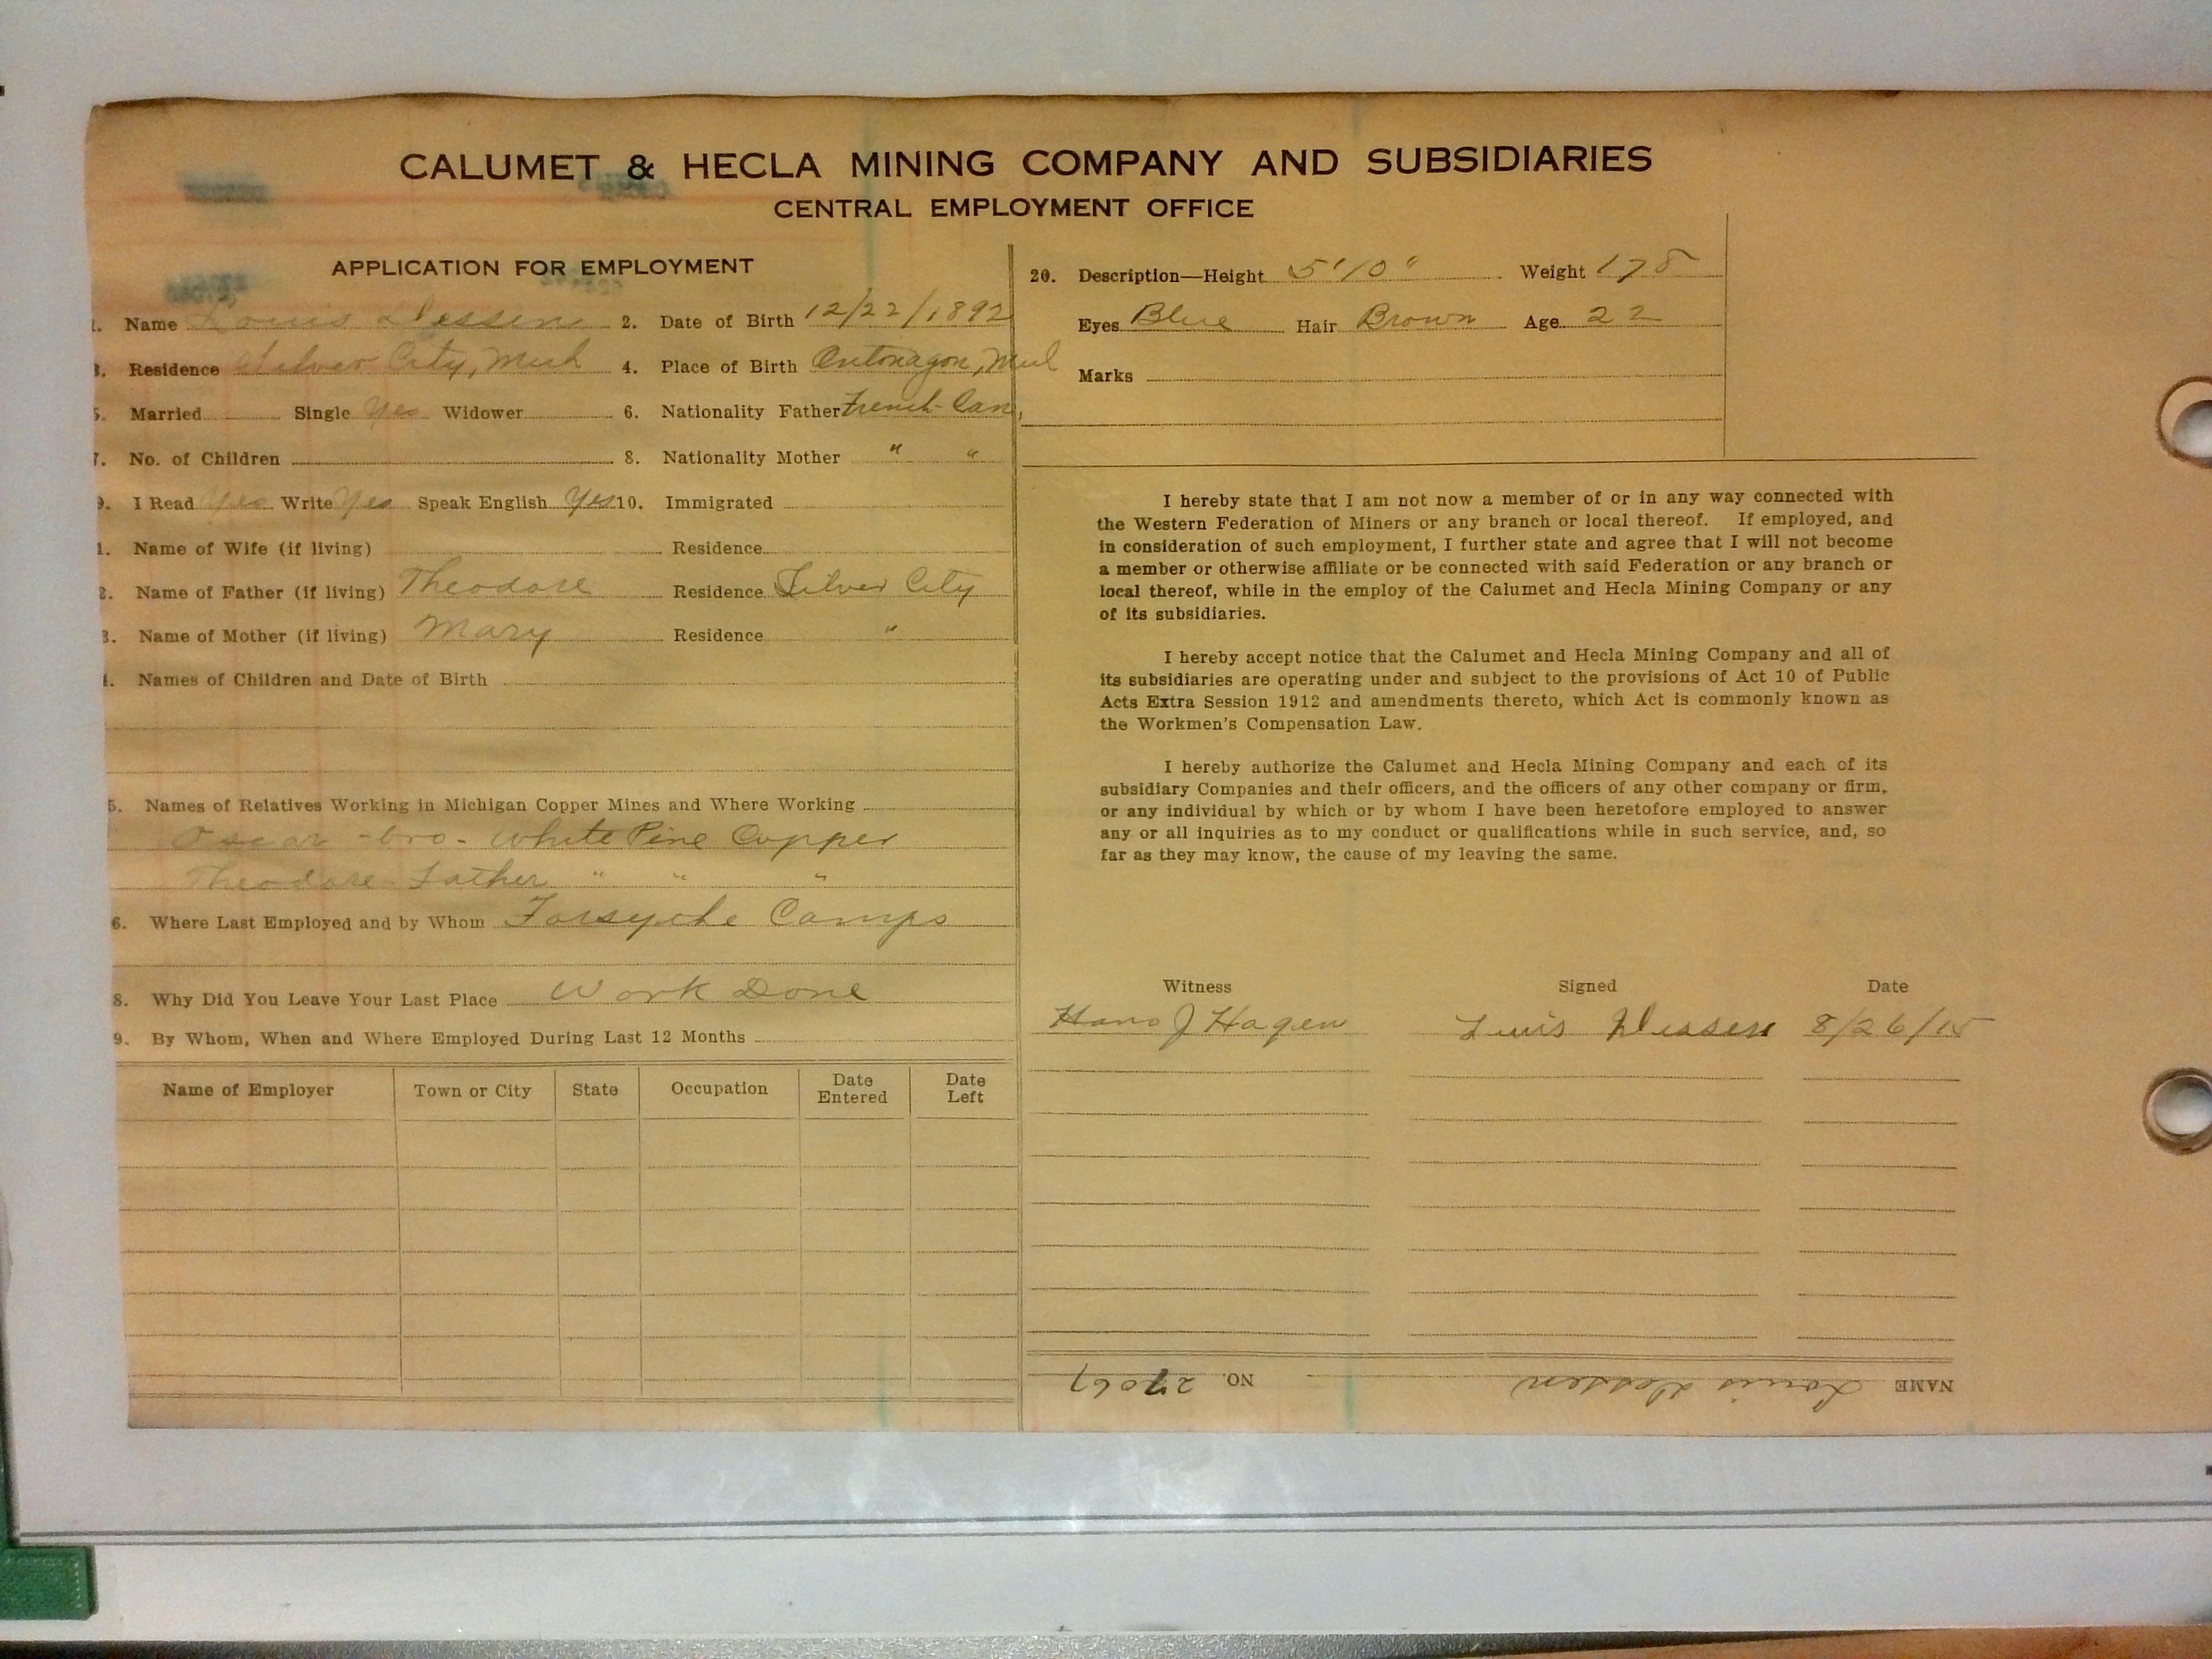 CALUMET & HECLA MINING COMPANY AND SUBSIDIARIES
CENTRAL EMPLOYMENT OFFICE
APPLICATION FOR EMPLOYMENT
1. Name Louis Dessen 2. Date of Birth 12/22/1892
3. Residence Silver City, Mich 4. Place of Birth Ontonagon, Mich
5. Married Single Yes Widower 6. Nationality Father French-Can,
7. No. of Children 8. Nationality Mother " "
9. I Read Yes Write Yes Speak English Yes 10. Immigrated
1. Name of Wife (if living) Residence
2. Name of Father (if living) Theodore Residence Silver City
3. Name of Mother (if living) Mary Residence "
4. Names of Children and Date of Birth
5. Names of Relatives Working in Michigan Copper Mines and Where Working
Oscar - bro - White Pine Copper
Theodore - Father " " "
6. Where Last Employed and by Whom Forsythe Camps
8. Why Did You Leave Your Last Place Work Done
9. By Whom, When and Where Employed During Last 12 Months
Name of Employer Town or City State Occupation Date Entered Date Left
20. Description—Height 5'10" Weight 178
Eyes Blue Hair Brown Age 22
Marks
I hereby state that I am not now a member of or in any way connected with
the Western Federation of Miners or any branch or local thereof. If employed, and
in consideration of such employment, I further state and agree that I will not become
a member or otherwise affiliate or be connected with said Federation or any branch or
local thereof, while in the employ of the Calumet and Hecla Mining Company or any
of its subsidiaries.
I hereby accept notice that the Calumet and Hecla Mining Company and all of
its subsidiaries are operating under and subject to the provisions of Act 10 of Public
Acts Extra Session 1912 and amendments thereto, which Act is commonly known as
the Workmen's Compensation Law.
I hereby authorize the Calumet and Hecla Mining Company and each of its
subsidiary Companies and their officers, and the officers of any other company or firm,
or any individual by which or by whom I have been heretofore employed to answer
any or all inquiries as to my conduct or qualifications while in such service, and, so
far as they may know, the cause of my leaving the same.
Witness Signed Date
Hans J Hagen Louis Dessen 8/26/15
NAME Louis Dessen NO. 27067